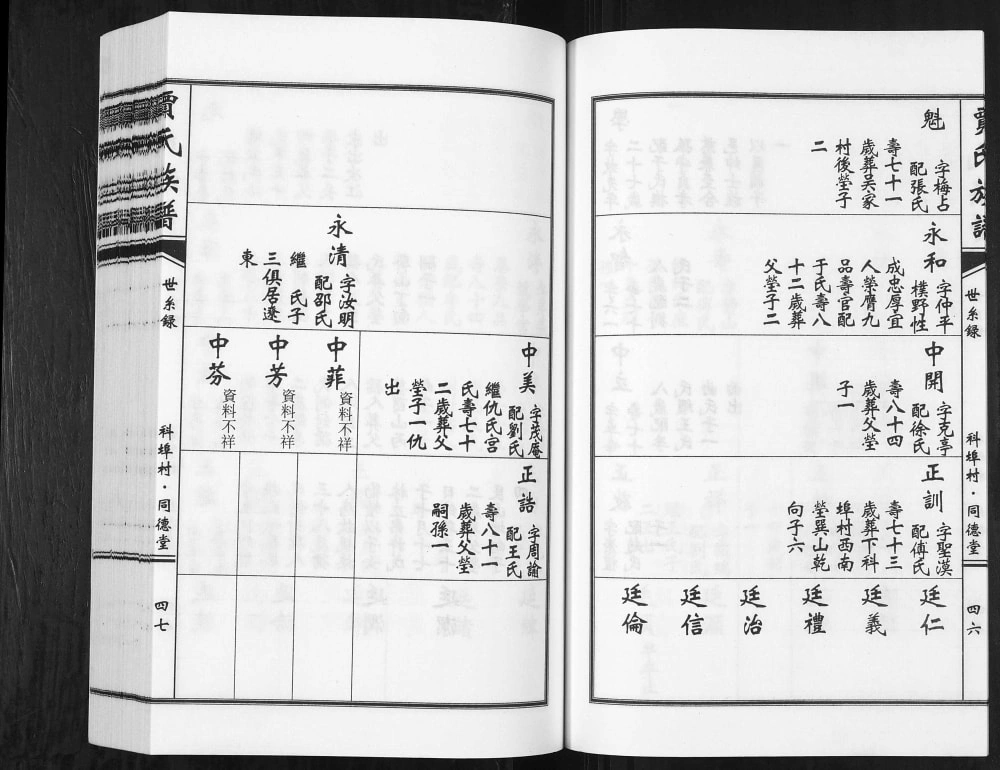 賈氏族譜
世系錄
科埠村・同德堂
四六
魁
字梅占
配張氏
壽七十一
歲葬吴家
村後塋子
二
永和
字仲平
樸野性
成忠厚宜
人榮膺九
品壽官配
于氏壽八
十二歲葬
父塋子二
中開
字克亭
配徐氏
壽八十四
歲葬父塋
子一
正訓
字聖漠
配傅氏
壽七十三
歲葬下科
埠村西南
塋巽山乾
向子六
廷仁
廷義
廷禮
廷治
廷信
廷倫
永清
字汝明
配邵氏
繼 氏子
三俱居遼
東
中美
字茂庵
配劉氏
繼仇氏宫
氏壽七十
二歲葬父
塋子一仇
出
中菲
資料不祥
中芳
資料不祥
中芬
資料不祥
正誥
字周諭
配王氏
壽八十一
歲葬父塋
嗣孫一
賈氏族譜
世系錄
科埠村・同德堂
四七